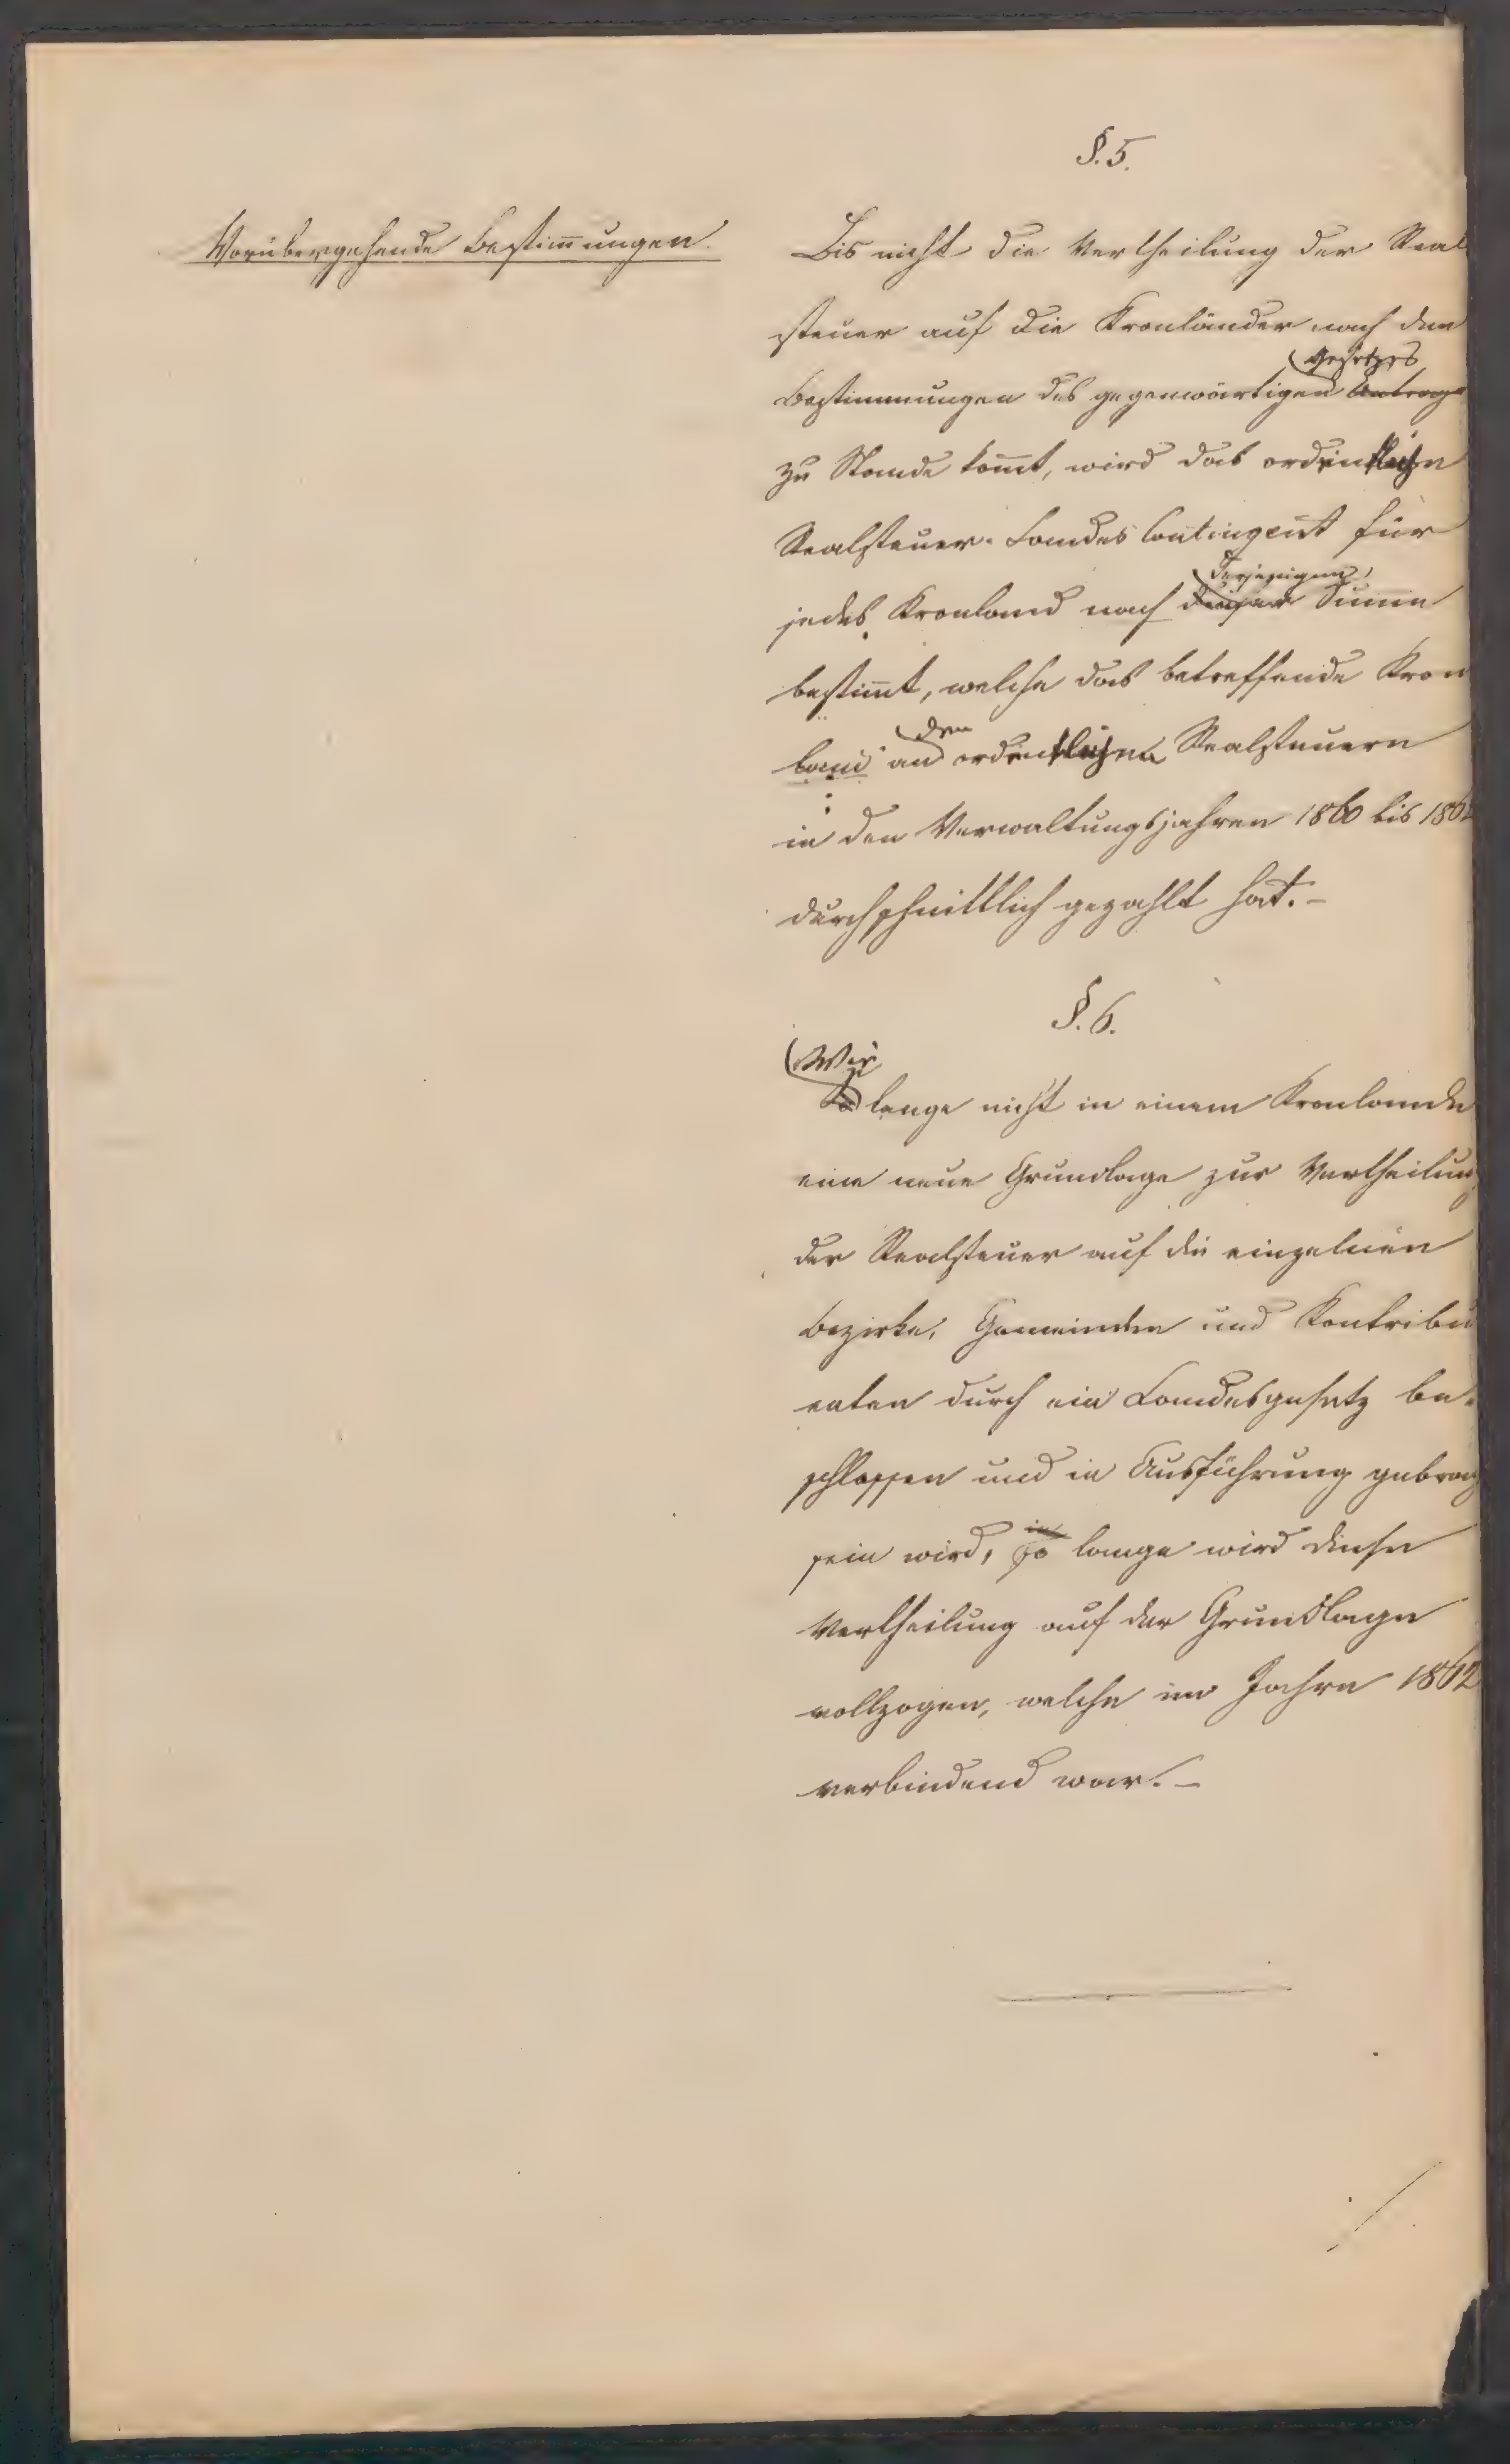 §. 5.
Vorübergehende Bestim̄ungen.
Bis nicht die Vertheilung der Real
steuer auf die Kronländer nach den
Gesetzes
Bestimmungen des gegenwärtigen Antrages
zu Stande kom̄t, wird das ordentliche
Realsteuer-Landes Contingent für
derjenigen
jedes Kronland nach dieser Sum̄e
bestim̄t, welche das betreffende Kron
den
land an ordentlichen Realsteuern
in den Verwaltungsjahren 1860 bis 1862
durchschnittlich gezahlt hat. –
§. 6.
Wie
So lange nicht in einem Kronlande
eine neue Grundlage zur Vertheilung
der Realsteuer auf die einzelnen
Bezirke, Gemeinden und Kontribu
enten durch ein Landesgesetz be-
schlossen und in Ausführung gebrach
sein wird, so lange wird diese
Vertheilung auf der Grundlage
vollzogen, welche im Jahre 1862
verbindend war. –